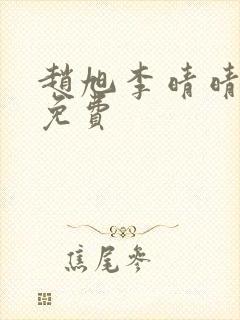 趙旭李晴晴
免費
焦尾參